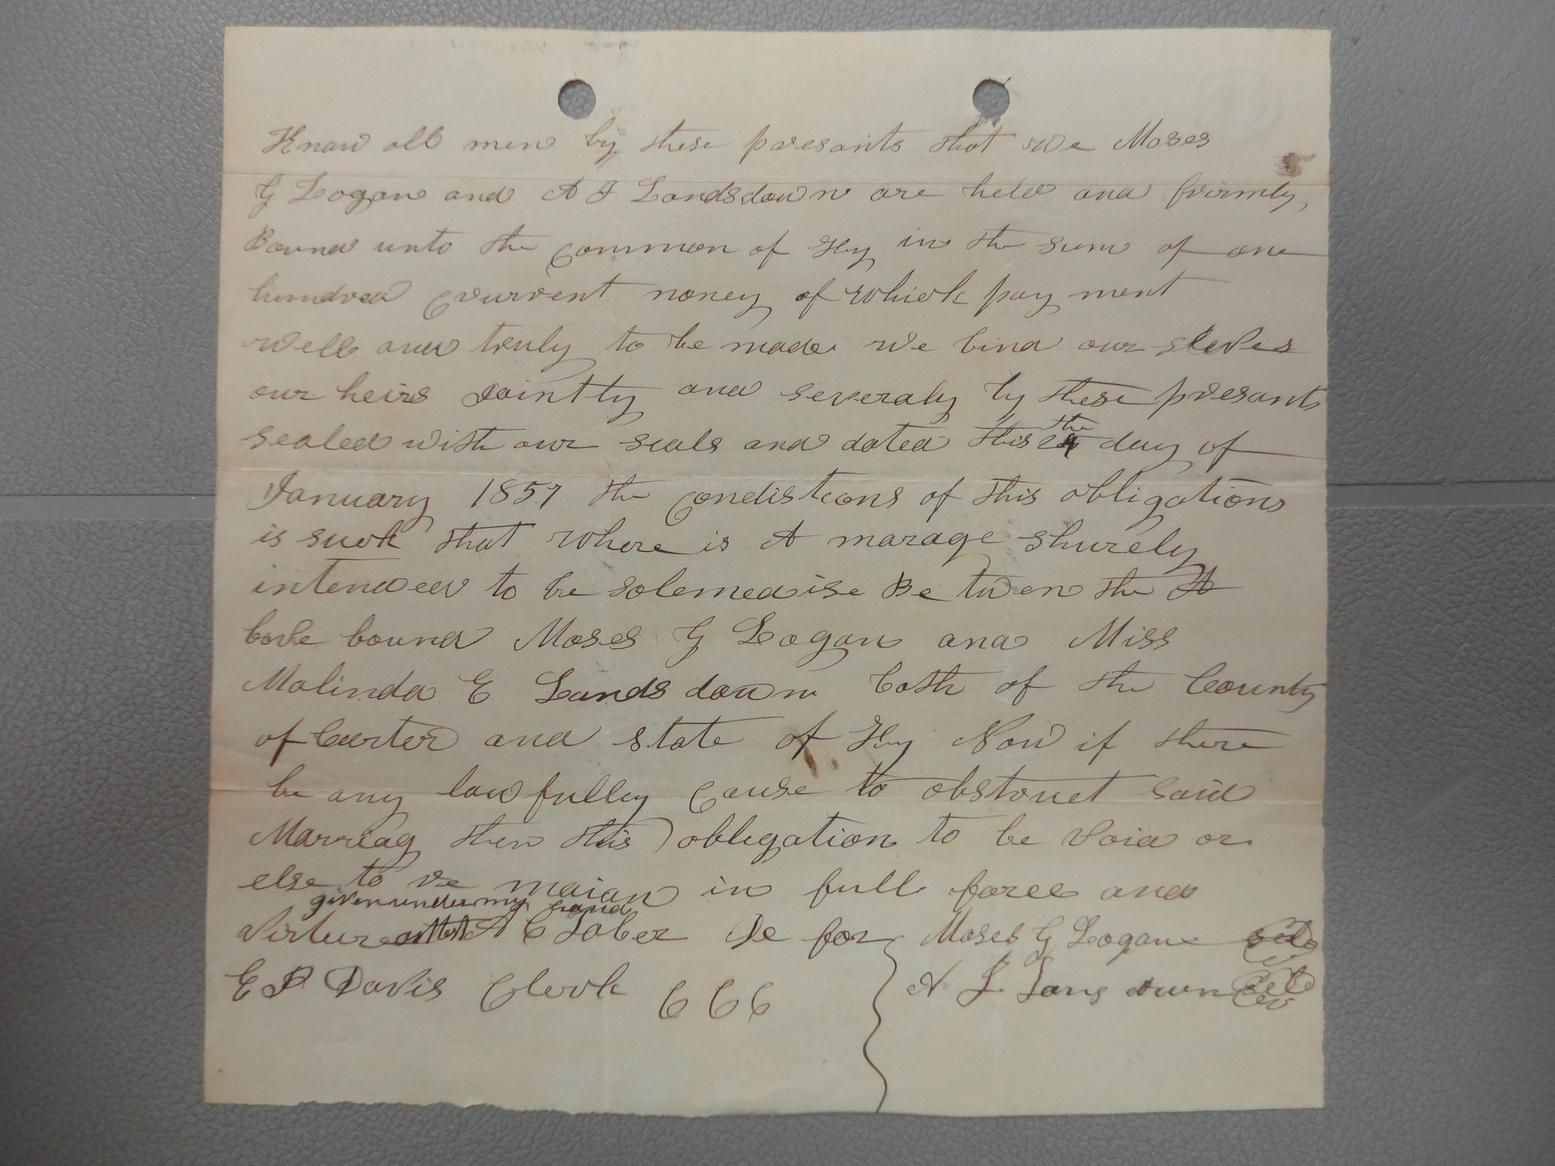 Know all men by these presants that we Moses
G Logan and A J Landsdown are held and firmly,
Bound unto the common of Ky in the sum of one
hundred current money of which pay ment
well and truly to be made we bind our slelves
our heirs Jointly and severaly by these presants
sealed with our seals and dated this the day of
January 1857 the condistions of this obligations
is such that where is A marage shurely
intended to be solemedise Be twen the A
bove bound Moses G Logan and Miss
Malinda E Landsdown both of the County
of Carter and state of Ky Now if there
be any lawfulley cause to obstruct said
Marriag then this obligation to be void or
else to re maian in full force and
given under my hand
virture attest A C Tober De for Moses G Logan
E B Davis Clerk C C C A J Lansdown